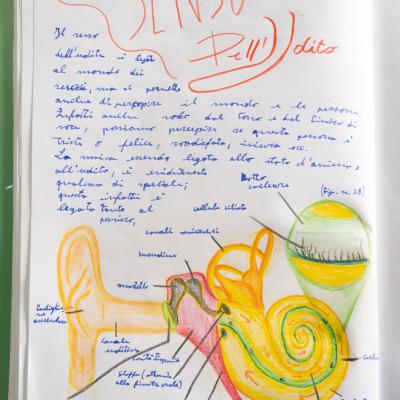 SENSO
Dell'Udito
Il senso
dell'udito è legato
al mondo dei
ma ci permette
anche di percepire il mondo e le persone.
Infatti anche solo dal tono e dal timbro di
voce, possiamo percepire se questa persona è
triste o felice, soddisfatta, insicura ecc.
La musica essendo legata allo stato d'animo e
all'udito, è evidentemente
qualcosa di speciale;
questo infatti è
legato tanto al
pensiero,
Dotto
cocleare
(fig. n. 28)
cellule ciliate
canali semicircolari
incudine
martello
Padiglio-
ne auricolare
canale
uditivo
staffa (attaccata
alla finestra ovale)